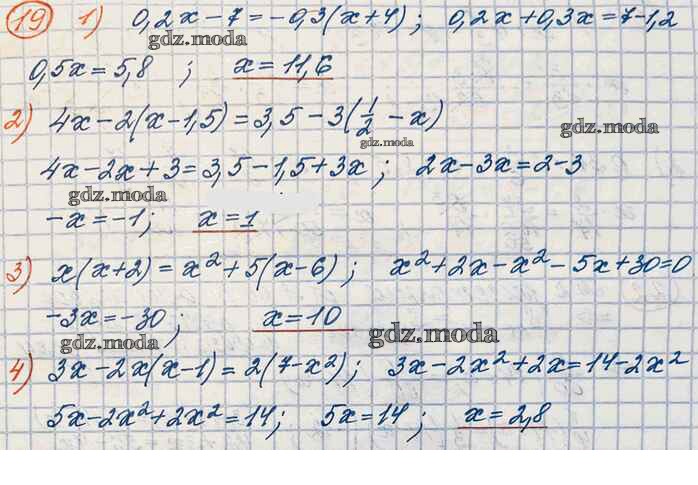 19 1) 0,2x - 7 = -0,3(x+4); 0,2x + 0,3x = 7 - 1,2
0,5x = 5,8 ; x = 11,6
2) 4x - 2(x - 1,5) = 3,5 - 3(1/2 - x)
gdz.moda
gdz.moda
4x - 2x + 3 = 3,5 - 1,5 + 3x ; 2x - 3x = 2 - 3
gdz.moda
-x = -1; x = 1
3) x(x+2) = x² + 5(x-6) ; x² + 2x - x² - 5x + 30 = 0
-3x = -30 ; x = 10
gdz.moda
gdz.moda
4) 3x - 2x(x-1) = 2(7 - x²); 3x - 2x² + 2x = 14 - 2x²
5x - 2x² + 2x² = 14; 5x = 14 ; x = 2,8